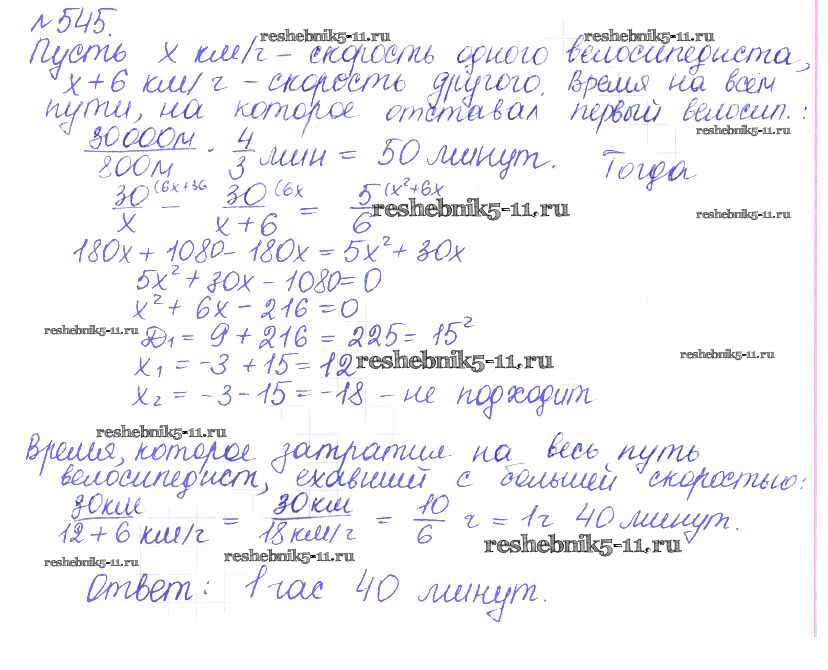 №545.
reshebnik5-11.ru reshebnik5-11.ru
Пусть x км/г - скорость одного велосипедиста,
x+6 км/г - скорость другого. Время на всём
пути, на которое отставал первый велосип.:
reshebnik5-11.ru
30000м/800м · 4/3 мин = 50 минут. Тогда
30/x (6x+36 - 30/x+6 (6x = 5/6 (x²+6x
reshebnik5-11.ru reshebnik5-11.ru
180x + 1080 - 180x = 5x² + 30x
5x² + 30x - 1080 = 0
x² + 6x - 216 = 0
reshebnik5-11.ru
Д₁ = 9 + 216 = 225 = 15²
x₁ = -3 + 15 = 12
reshebnik5-11.ru reshebnik5-11.ru
x₂ = -3 - 15 = -18 - не подходит
reshebnik5-11.ru
Время, которое затратил на весь путь
велосипедист, ехавший с большей скоростью:
30км/12+6 км/г = 30км/18км/г = 10/6 г = 1г 40 минут.
reshebnik5-11.ru reshebnik5-11.ru reshebnik5-11.ru
Ответ: 1 час 40 минут.